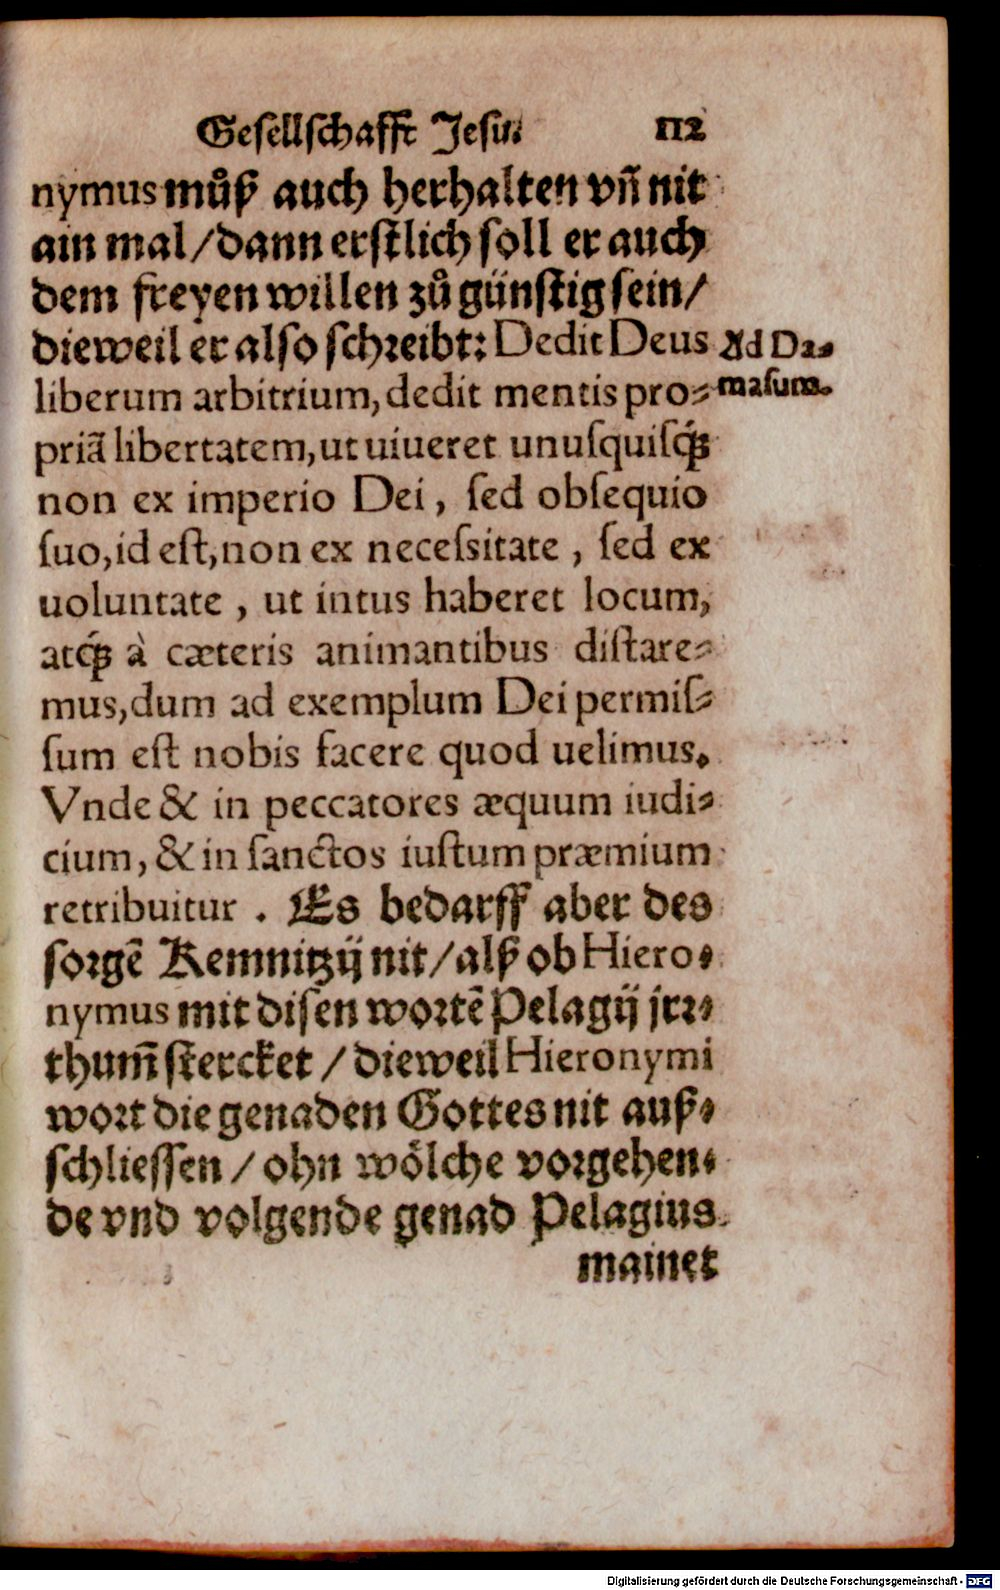 Gesellschafft Jesu. 112
nymus můß auch herhalten vñ nit
ain mal/dann erstlich soll er auch
dem freyen willen zů günstig sein/
dieweil er also schreibt: Dedit Deus
Ad Da⸗
liberum arbitrium, dedit mentis pro⸗
masum.
priã libertatem, ut uiueret unuſquiſq́ꝫ
non ex imperio Dei, ſed obſequio
ſuo, id eſt, non ex neceſsitate, ſed ex
uoluntate, ut intus haberet locum,
atq́ꝫ à cæteris animantibus diſtare⸗
mus, dum ad exemplum Dei permiſ⸗
ſum eſt nobis facere quod uelimus.
Vnde & in peccatores æquum iudi⸗
cium, & in ſanctos iuſtum præmium
retribuitur. Es bedarff aber des
sorgẽ Kemnitzij nit/alß ob Hiero⸗
nymus mit disen wortẽ Pelagij irr⸗
thum̃ stercket/dieweil Hieronymi
wort die genaden Gottes nit auß⸗
schliessen/ohn wölche vorgehen⸗
de vnd volgende genad Pelagius
mainet
Digitalisierung gefördert durch die Deutsche Forschungsgemeinschaft - DFG